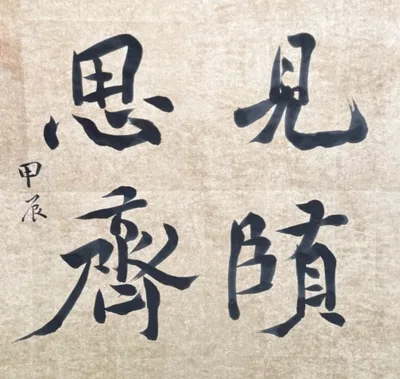 見賢
思齊
甲辰